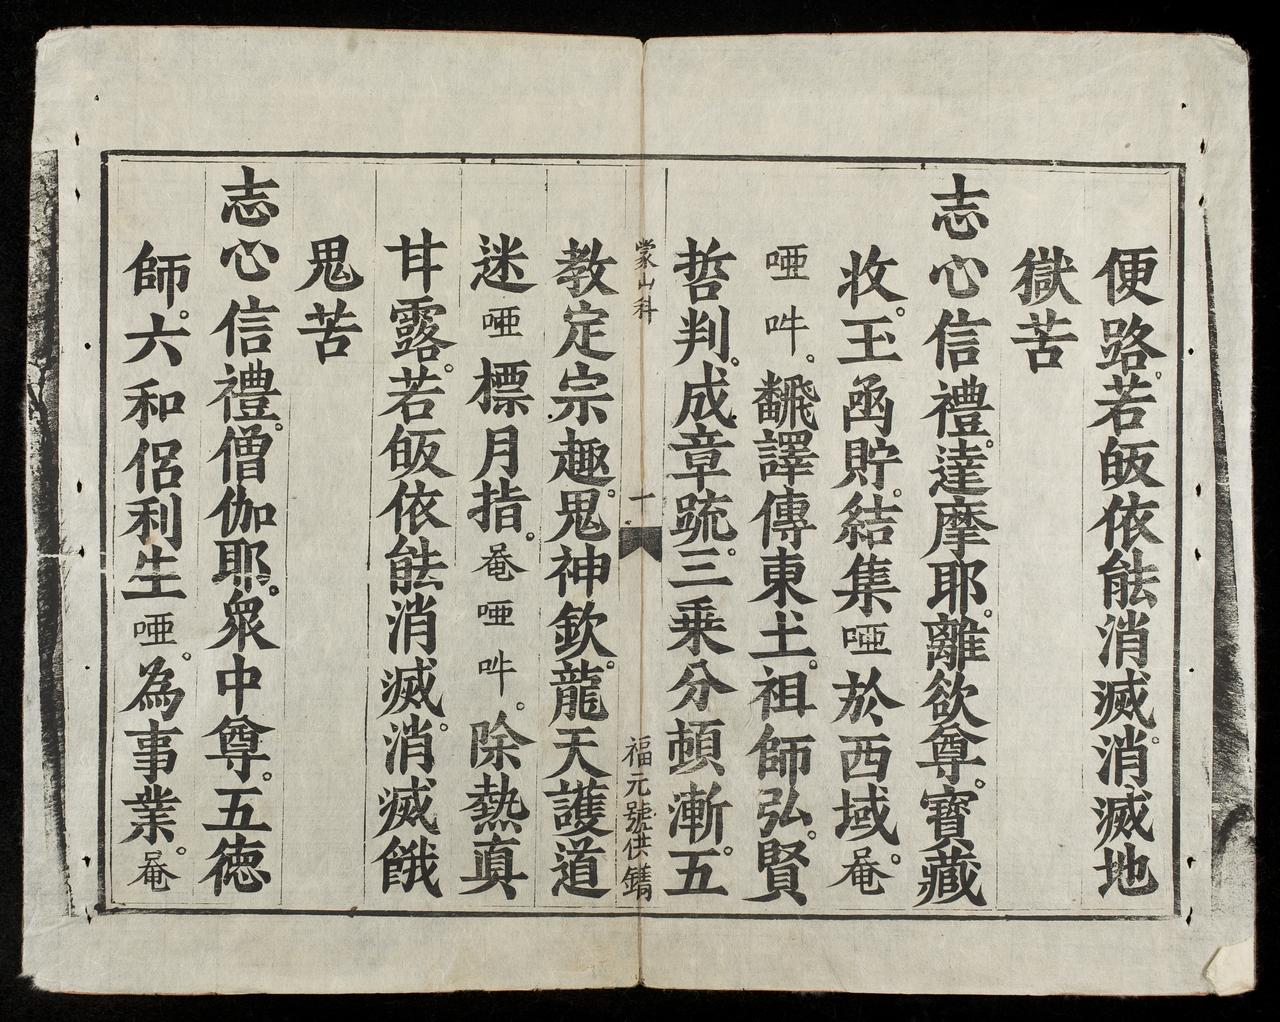 便路。若皈依能消滅。消滅地
獄苦
志心信禮。達摩耶。離欲尊。寶藏
收。玉函貯。結集𠷐於西域。菴
𠷐吽。飜譯傳東土。祖師弘。賢
哲判。成章䟽。三乘分頓漸。五
蒙山科 一 福元號供鐫
教定宗趣。鬼神欽。龍天護。道
迷𠷐標月指。菴𠷐吽。除熱真
甘露。若皈依能消滅。消滅餓
鬼苦
志心信禮。僧伽耶。眾中尊。五德
師。六和侶利生𠷐。為事業。菴